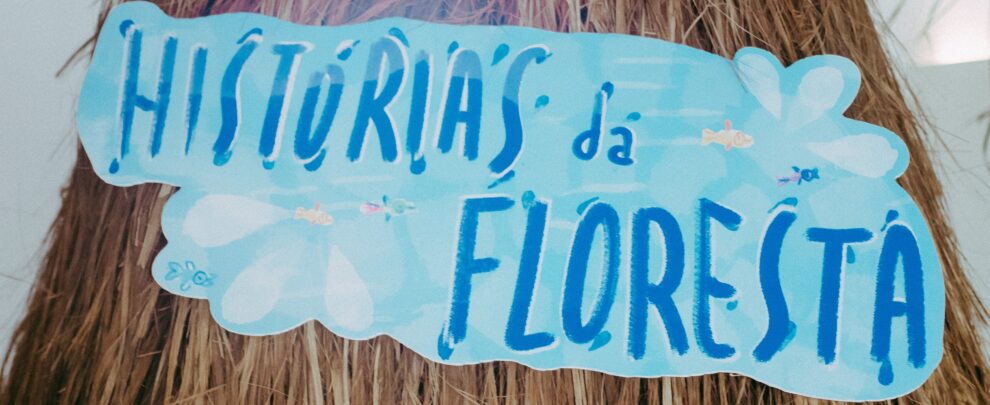 HISTÓRIAS da
FLORESTA